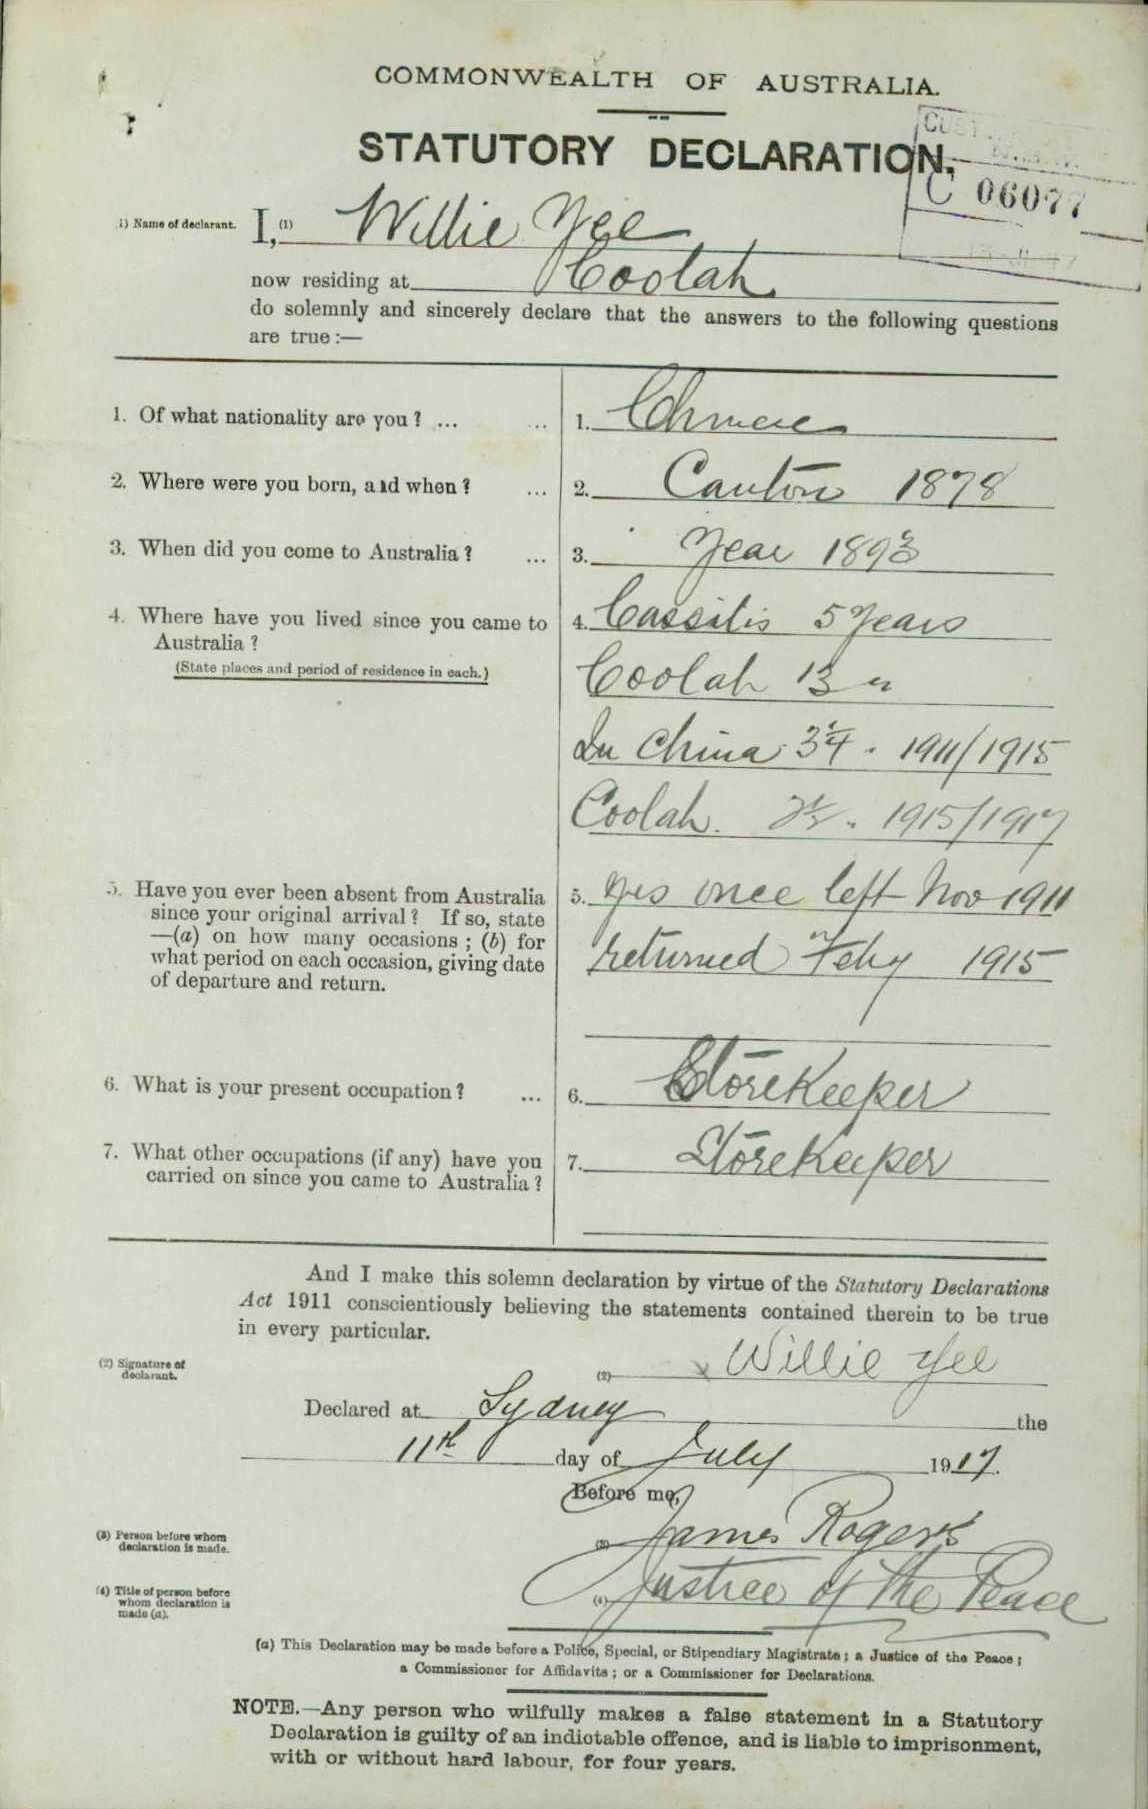 COMMONWEALTH OF AUSTRALIA.
STATUTORY DECLARATION.
C 06077
(1) Name of declarant. I, (1) Willie Yee
now residing at Coolah
do solemnly and sincerely declare that the answers to the following questions
are true:—
1. Of what nationality are you? ... ... 1. Chinese
2. Where were you born, and when? ... 2. Canton 1878
3. When did you come to Australia? ... 3. Year 1893
4. Where have you lived since you came to 4. Cassilis 5 Years
Australia?
(State places and period of residence in each.) Coolah 13 "
In China 3¼ . 1911/1915
Coolah. 2½ . 1915/1917
5. Have you ever been absent from Australia 5. Yes once left Nov 1911
since your original arrival? If so, state
—(a) on how many occasions; (b) for returned Feby 1915
what period on each occasion, giving date
of departure and return.
6. What is your present occupation? ... 6. Storekeeper
7. What other occupations (if any) have you 7. Storekeeper
carried on since you came to Australia?
And I make this solemn declaration by virtue of the Statutory Declarations
Act 1911 conscientiously believing the statements contained therein to be true
in every particular.
(2) Signature of declarant. (2) x Willie Yee
Declared at Sydney the
11th day of July 1917.
Before me,
(3) Person before whom declaration is made. (3) James Rogers
(4) Title of person before whom declaration is made (a). (4) Justice of the Peace
(a) This Declaration may be made before a Police, Special, or Stipendiary Magistrate; a Justice of the Peace;
a Commissioner for Affidavits; or a Commissioner for Declarations.
NOTE.—Any person who wilfully makes a false statement in a Statutory
Declaration is guilty of an indictable offence, and is liable to imprisonment,
with or without hard labour, for four years.